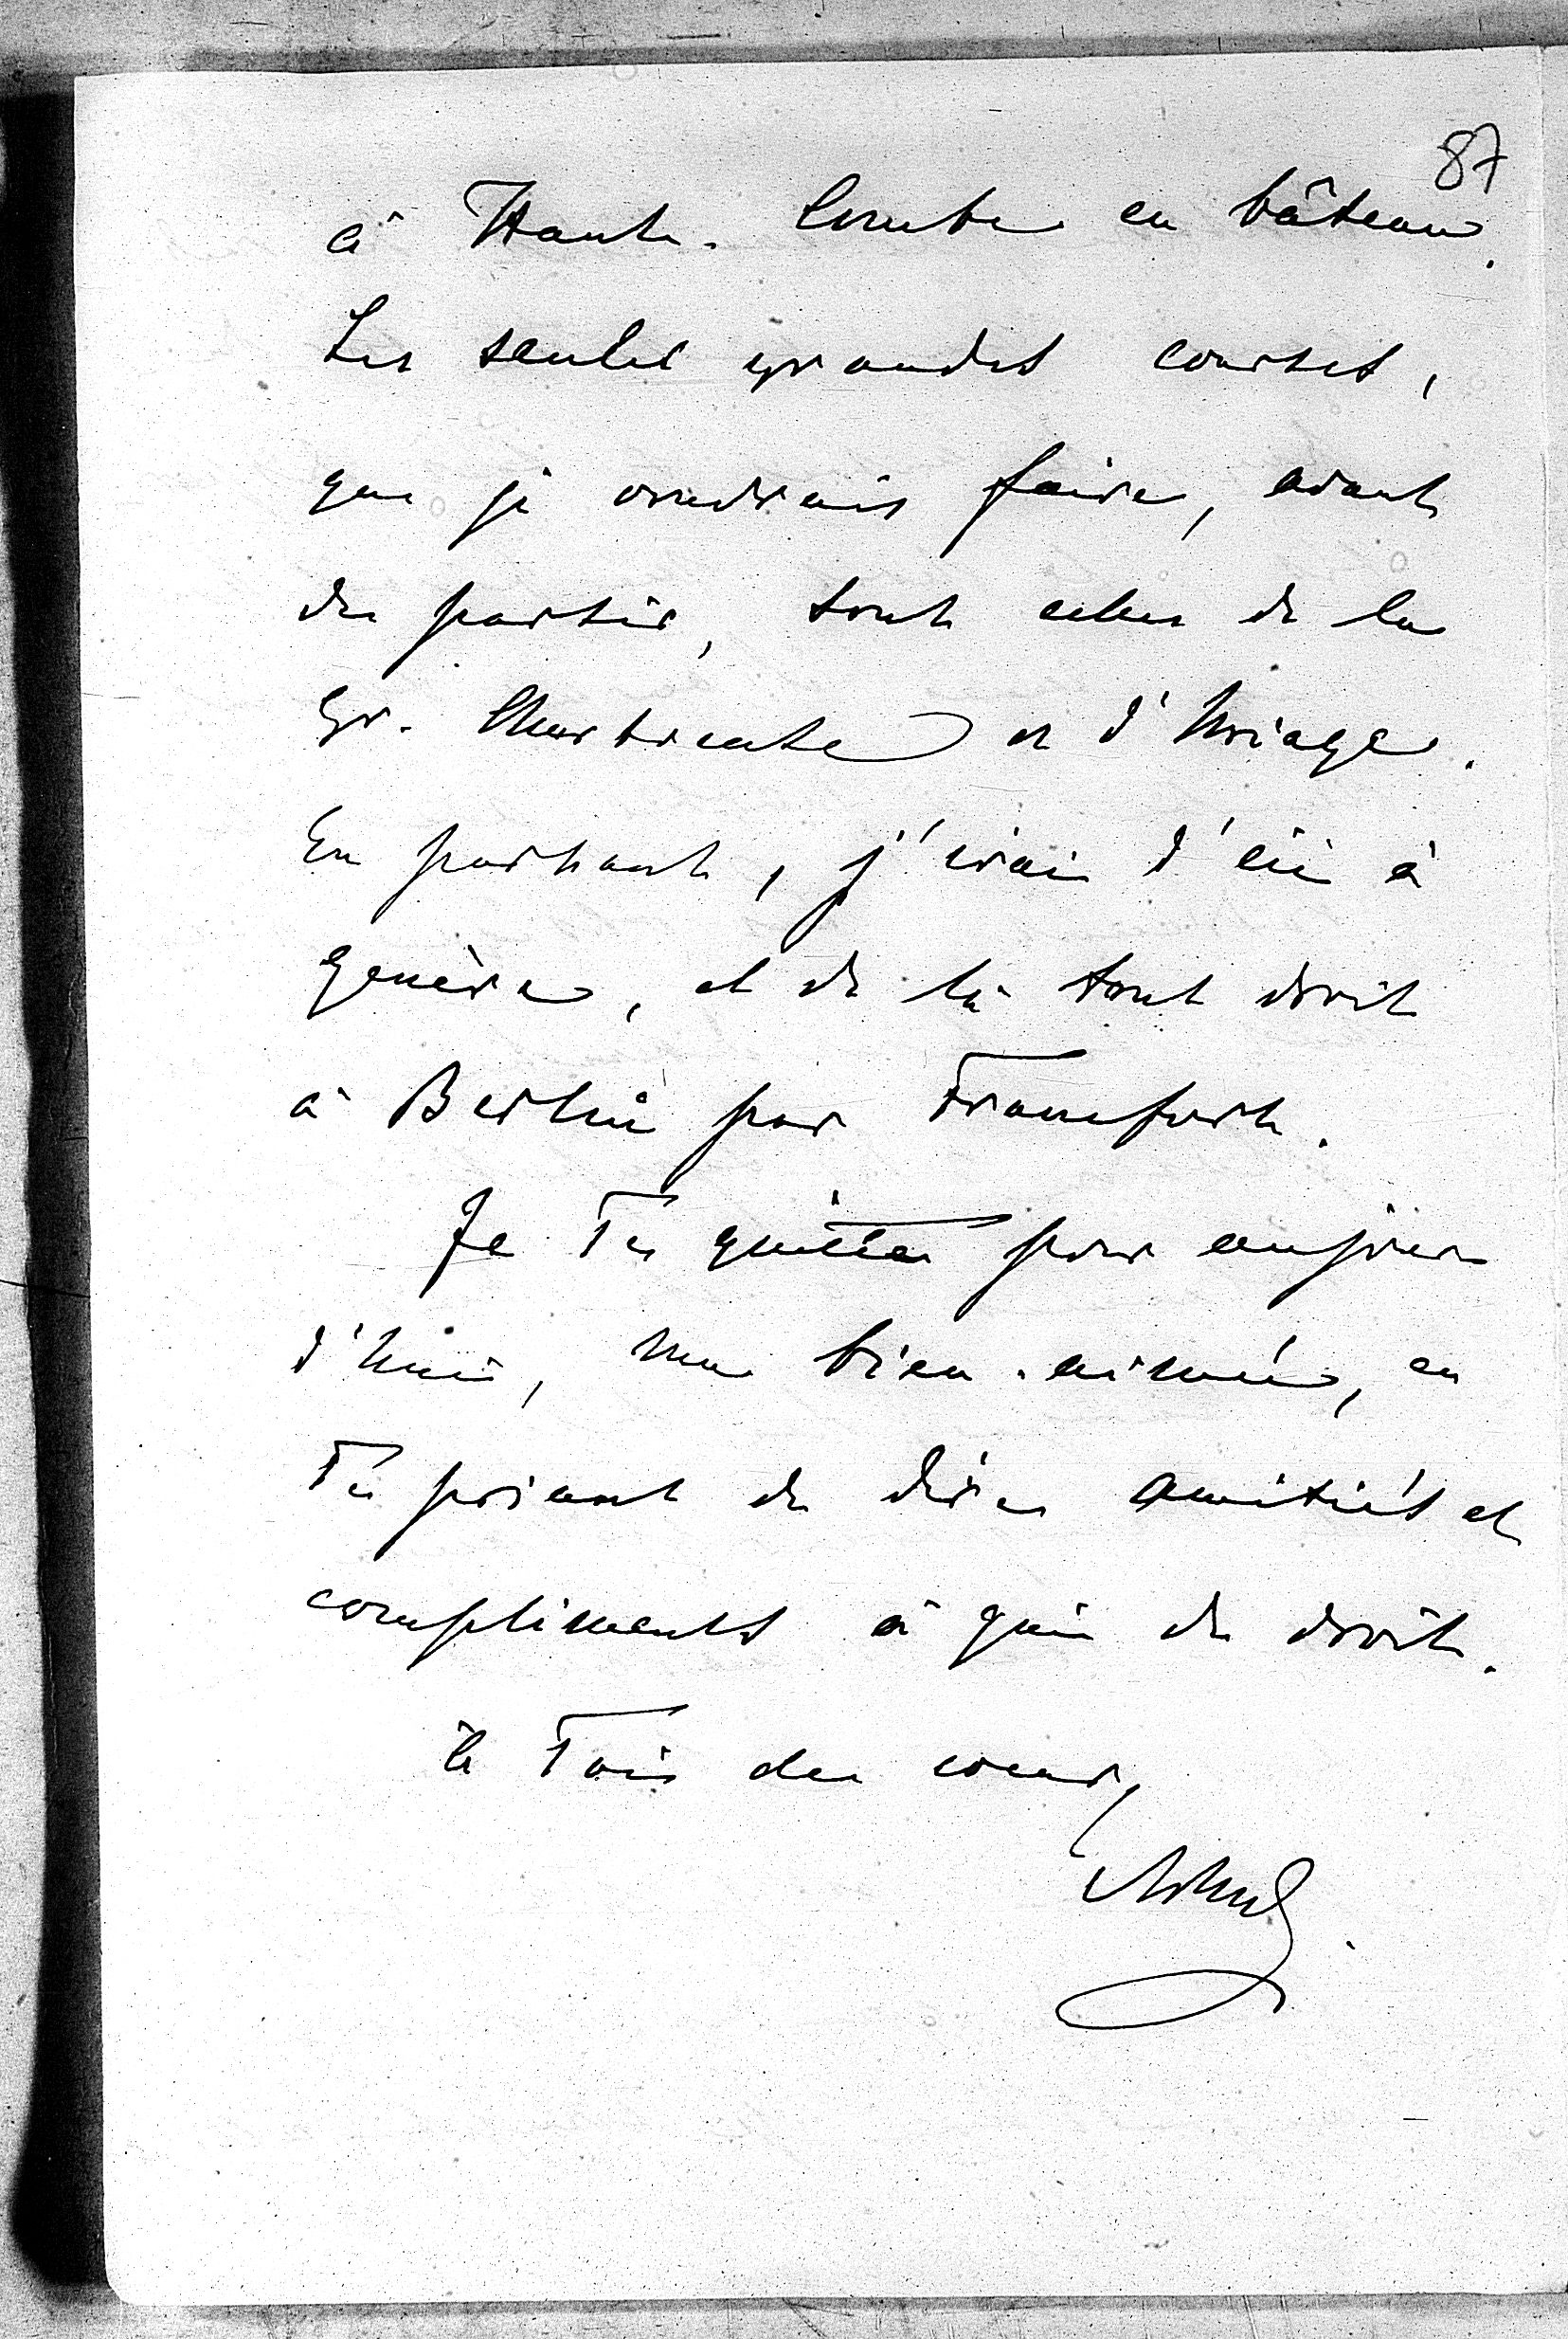 87
à Haute-Combe en bâteau.
Les seules grandes courses,
que je voudrais faire, avant
de partir, sont celles de la
Gr. Chartreuse et d'Uriage.
En partant, j'irai d'ici à
Genève, et de là tout droit
à Berlin par Francfort.
Je Te quitte pour aujour
d'hui, ma bien-aimée, en
Te priant de dire amitiés et
compliments à qui de droit.
à Toi de cœur,